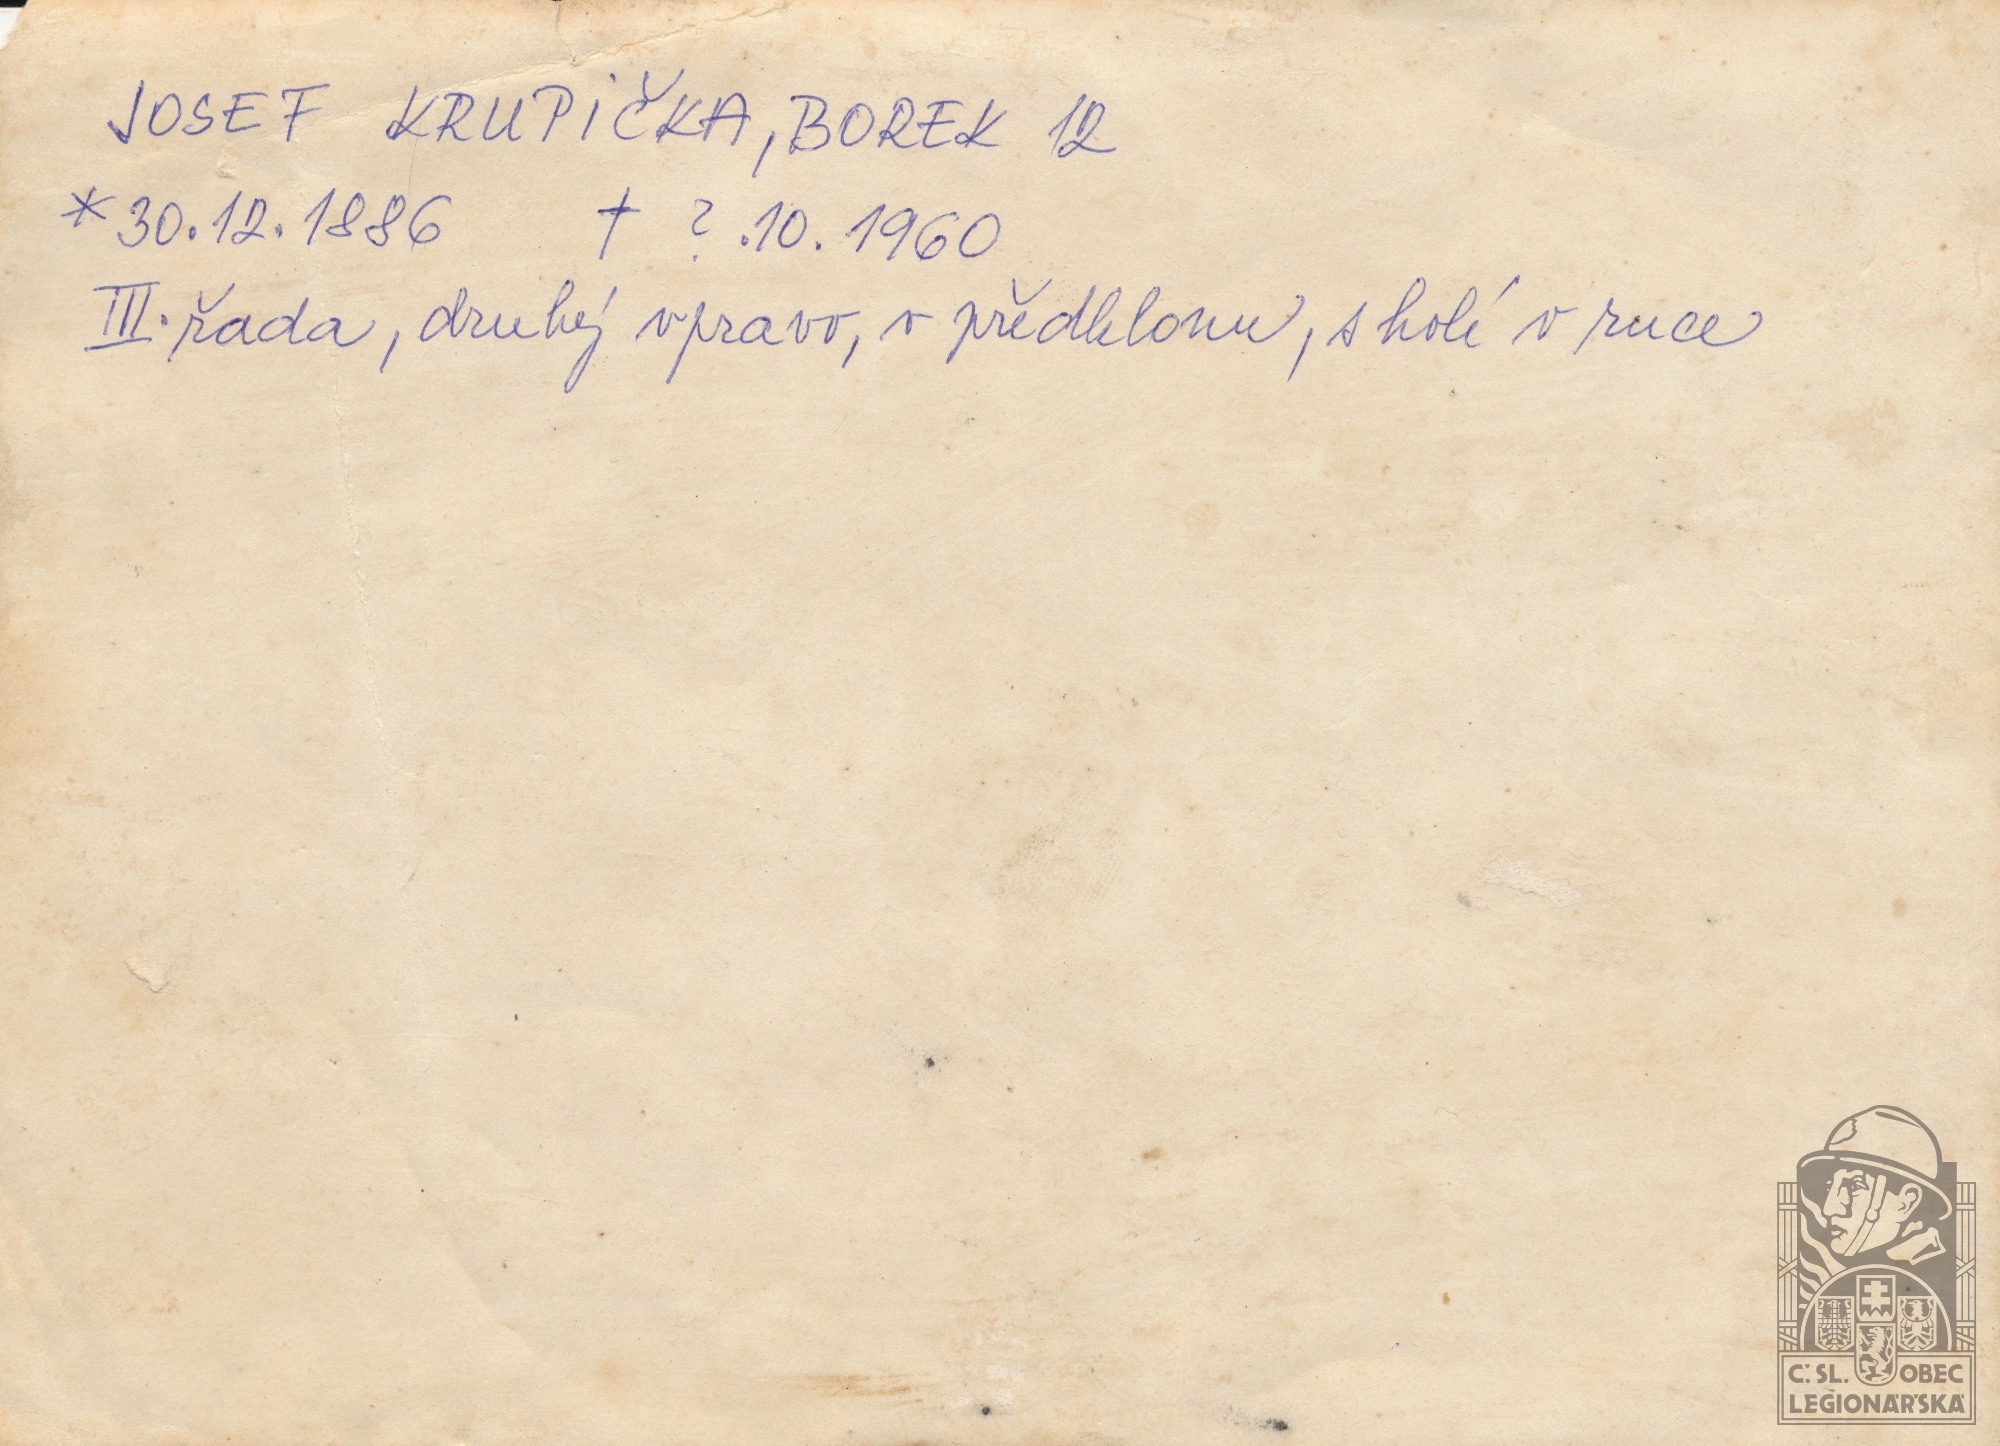 JOSEF KRUPIČKA, BOREK 12
* 30.12.1886 † ?.10.1960
III. řada, druhý vpravo, v předklonu, s holí v ruce
Č. SL. OBEC
LEGIONÁŘSKÁ